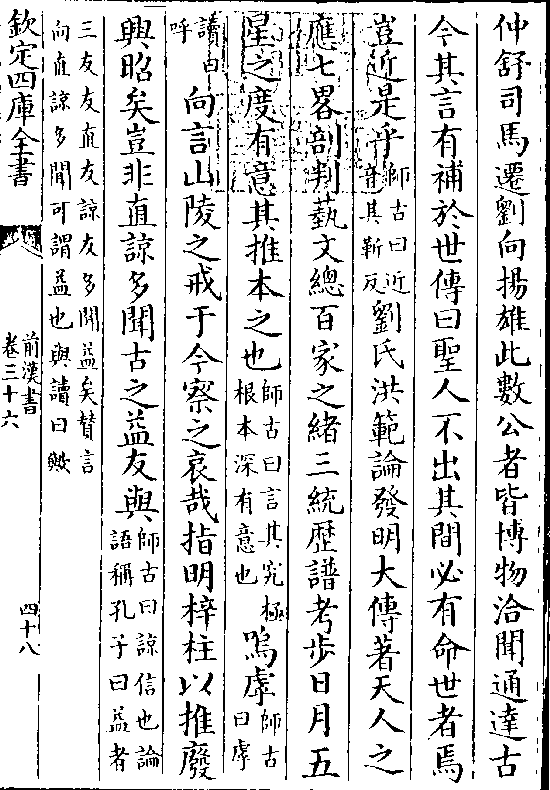 仲舒司馬遷劉向揚雄此數公者皆博物洽聞通達古
今其言有補於世傳曰聖人不出其間必有命世者焉
豈近是乎師古曰近音其靳反劉氏洪範論發明大傳著天人之
應七畧剖判藝文總百家之緒三統歴譜考步日月五
星之度有意其推本之也師古曰言其究極根本深有意也嗚虖師古曰虖
讀曰呼向言山陵之戒于今察之哀哉指明梓柱以推廢
興昭矣豈非直諒多聞古之益友與師古曰諒信也論語稱孔子曰益者
三友友直友諒友多聞益矣贊言向直諒多聞可謂益也與讀曰歟
欽定四庫全書
前漢書
卷三十六
四十八